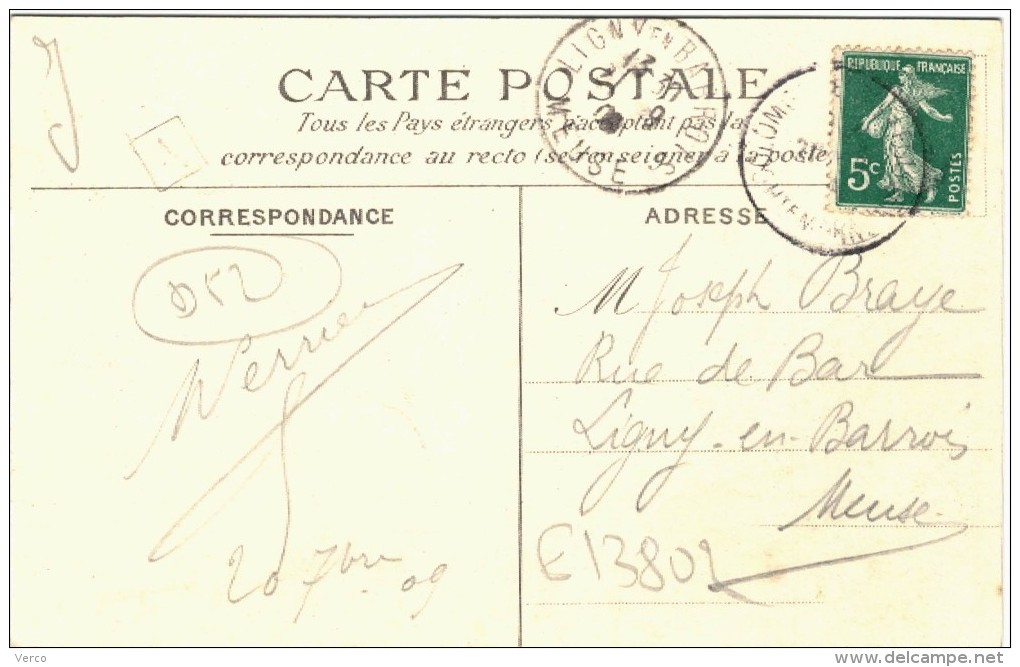 J
A
CARTE POSTALE
Tous les Pays étrangers n'acceptant pas la
correspondance au recto (se renseigner à la poste)
LIGNY EN BARROIS
MEUSE
RÉPUBLIQUE FRANÇAISE
5c
POSTES
CHAUMONT
HAUTE MARNE
CORRESPONDANCE
D52
20 7bre 09
ADRESSE
M Joseph Braye
Rue de Bar
Ligny-en-Barrois
Meuse
E13802
Verco
www.delcampe.net